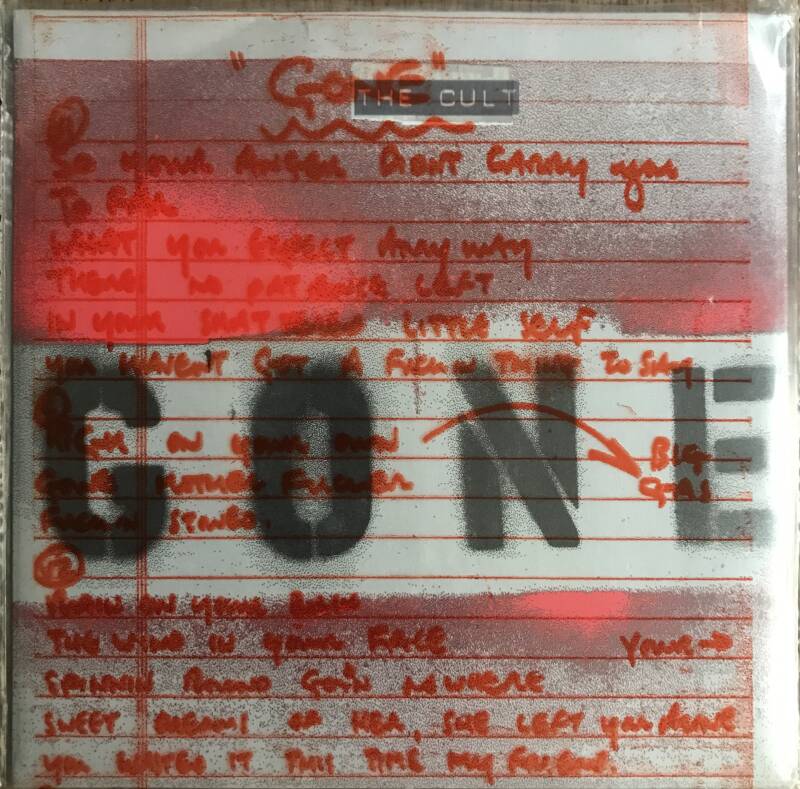 "GONE"
THE CULT
SO YOUR ANGER DIDNT CARRY you
TO FAR
WHAT you EXPECT ANYWAY
NO PATIENCE LEFT
IN YOUR LITTLE SELF
YOU HAVEN'T GOT A FUCKIN THING TO SAY
GONE
ON YOUR OWN
BIG
MOTHER FUCKER
FUCKIN STONED.
ON YOUR BACK
THE WIND IN YOUR FACE
YOUR →
SPINNIN ROUND GOIN NOWHERE
SWEET DREAMS OF HER, SHE LEFT you ALONE
YOU IT THIS TIME MY FRIEND.